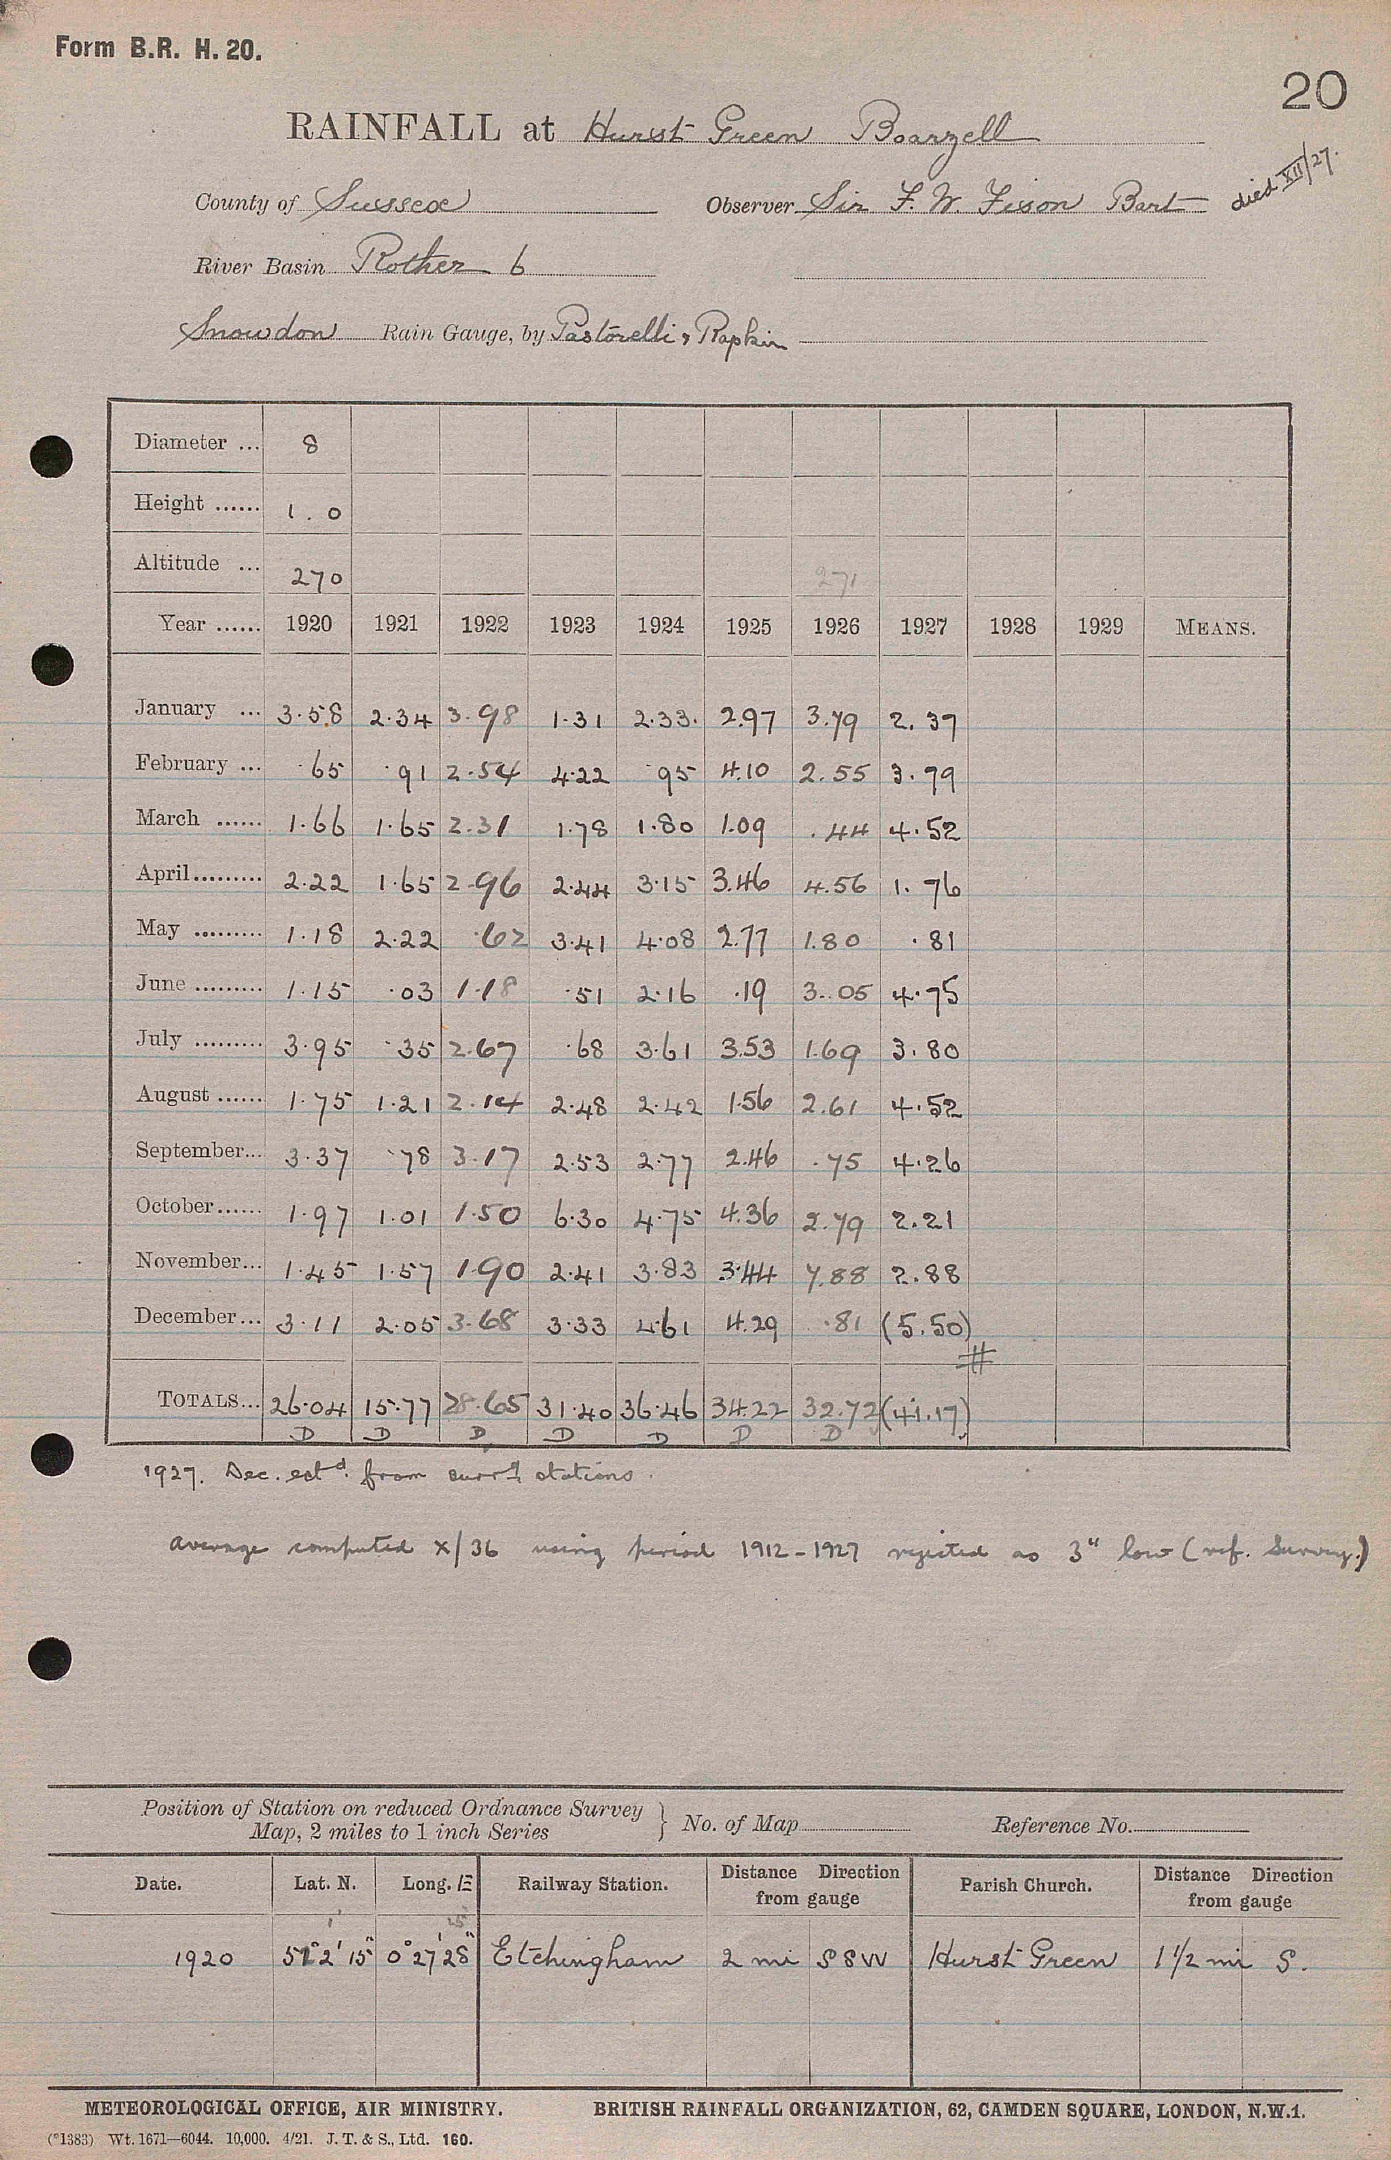 Form B.R. H. 20.
20
RAINFALL at Hurst Green Boarzell
died XII/27.
County of Sussex Observer Sir F. W. Fison Bart
River Basin Rother 6
Snowdon Rain Gauge, by Pastorelli & Rapkin
Diameter ... 8
Height ...... 1 . 0
Altitude ... 270 271
Year ...... 1920 1921 1922 1923 1924 1925 1926 1927 1928 1929 MEANS.
January ... 3.58 2.34 3.98 1.31 2.33. 2.97 3.79 2.37
February ... .65 .91 2.54 4.22 .95 4.10 2.55 3.79
March ...... 1.66 1.65 2.31 1.78 1.80 1.09 .44 4.52
April......... 2.22 1.65 2.96 2.44 3.15 3.46 4.56 1.76
May ......... 1.18 2.22 .62 3.41 4.08 2.77 1.80 .81
June ......... 1.15 .03 1.18 .51 2.16 .19 3.05 4.75
July ......... 3.95 .35 2.67 .68 3.61 3.53 1.69 3.80
August ...... 1.75 1.21 2.14 2.48 2.42 1.56 2.61 4.52
September... 3.37 .78 3.17 2.53 2.77 2.46 .75 4.26
October...... 1.97 1.01 1.50 6.30 4.75 4.36 2.79 2.21
November... 1.45 1.57 1.90 2.41 3.83 3.44 7.88 2.88
December... 3.11 2.05 3.68 3.33 4.61 4.29 .81 (5.50)
#
TOTALS... 26.04 15.77 28.65 31.40 36.46 34.22 32.72 (41.17)
D D D D D D D
1927. Dec. estd. from surrg stations.
Average computed X/36 using period 1912-1927 rejected as 3" low (ref. Survey.)
Position of Station on reduced Ordnance Survey
Map, 2 miles to 1 inch Series } No. of Map Reference No.
Date. Lat. N. Long. E Railway Station. Distance Direction from gauge Parish Church. Distance Direction from gauge
1' 25"
1920 51° 2' 15" 0° 27' 28" Etchingham 2 mi SSW Hurst Green 1 1/2 mi S.
METEOROLOGICAL OFFICE, AIR MINISTRY. BRITISH RAINFALL ORGANIZATION, 62, CAMDEN SQUARE, LONDON, N.W.1.
(*1383) Wt. 1671—6044. 10,000. 4/21. J. T. & S., Ltd. 160.